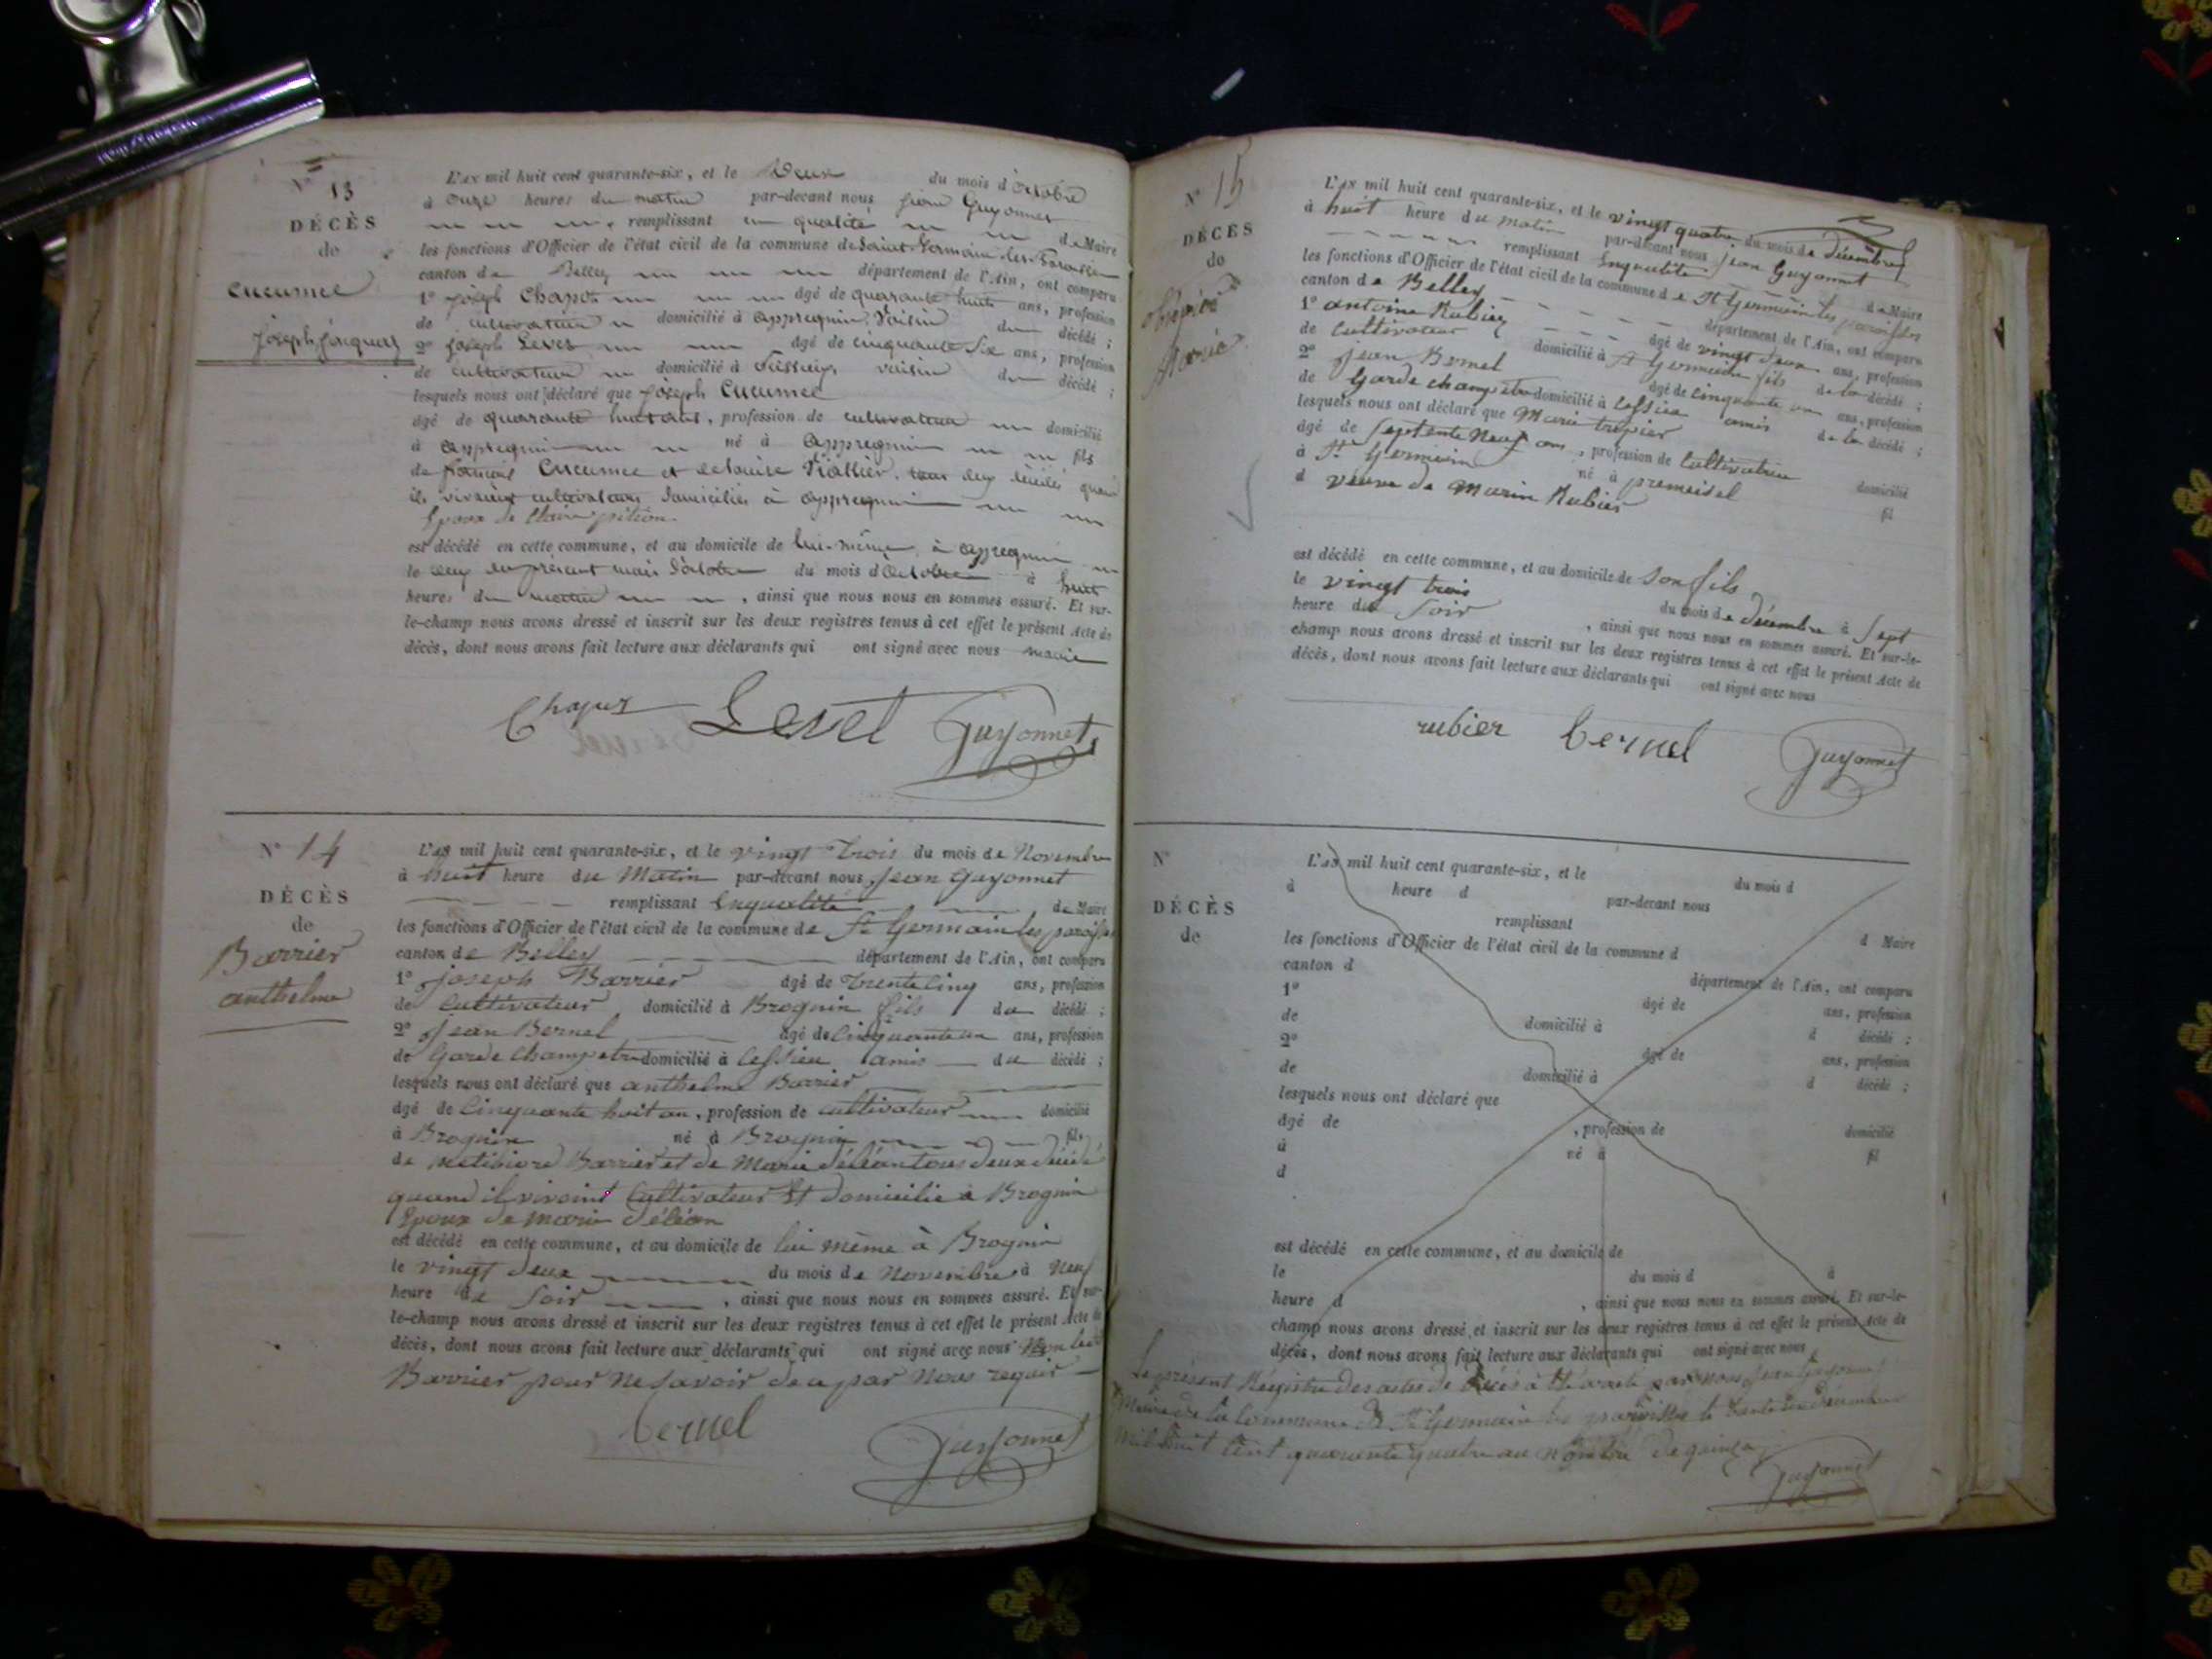 N° 13
DÉCÈS
de
Cucumee
Joseph Jacques
L'AN mil huit cent quarante-six, et le Deux du mois d'Octobre
à Onze heures du matin par-devant nous Jean Guyonnet
remplissant en qualité de Maire
les fonctions d'Officier de l'état civil de la commune de Saint Germain les Paroisses
canton de Belley département de l'Ain, ont comparu
1° Joseph Chapot âgé de quarante huit ans, profession
de cultivateur domicilié à Appregnin, Voisin du décédé ;
2° Joseph Level âgé de cinquante six ans, profession
de cultivateur domicilié à voisin du décédé ;
lesquels nous ont déclaré que Joseph Cucumee
âgé de quarante huit ans, profession de cultivateur domicilié
à Appregnin né à Appregnin fils
de françois Cucumee et de Louise tous deux décédés quand
ils vivaient cultivateurs domiciliés à Appregnin
Epoux de Claire
est décédé en cette commune, et au domicile de lui-même, à Appregnin
le deux du présent mois d'octobre du mois d'Octobre à huit
heures du matin , ainsi que nous nous en sommes assuré. Et sur-
le-champ nous avons dressé et inscrit sur les deux registres tenus à cet effet le présent Acte de
décès, dont nous avons fait lecture aux déclarants qui ont signé avec nous maire
Chapot Level Guyonnet
N° 14
DÉCÈS
de
Barrier
anthelme
L'AN mil huit cent quarante-six, et le vingt trois du mois de Novembre
à huit heure du Matin par-devant nous Jean Guyonnet
remplissant Enqualité de Maire
les fonctions d'Officier de l'état civil de la commune de St Germain les paroisses
canton de Belley département de l'Ain, ont comparu
1° joseph Barrier âgé de trente cinq ans, profession
de Cultivateur domicilié à Brognin fils du décédé ;
2° Jean Bernel âgé de Cinquante un ans, profession
de Garde Champetre domicilié à Cessieu amis du décédé ;
lesquels nous ont déclaré que anthelme Barrier
âgé de Cinquante huit an, profession de cultivateur domicilié
à Brognin né à Brognin fils
de Barrier et de Marie déléan tous deux décédé
quand il vivoint Cultivateur Et domicilie à Brognin
Epoux de marie déléan
est décédé en cette commune, et au domicile de lui même à Brognin
le vingt deux du mois de Novembre à Neuf
heure de Soir , ainsi que nous nous en sommes assuré. Et sur-
le-champ nous avons dressé et inscrit sur les deux registres tenus à cet effet le présent Acte de
décès, dont nous avons fait lecture aux déclarants qui ont signé avec nous Non led
Barrier pour ne savoir de a par Nous requis
bernel Guyonnet
N° 15
DÉCÈS
de
Marie
L'AN mil huit cent quarante-six, et le vingt quatre du mois de décembre
à huit heure du matin par-devant nous Jean Guyonnet
remplissant Enqualité de Maire
les fonctions d'Officier de l'état civil de la commune de St Germain les paroisses
canton de Belley département de l'Ain, ont comparu
1° antoine Rubier âgé de vingt deux ans, profession
de Cultivateur domicilié à St Germain fils de la décédé ;
2° Jean Bernel âgé de Cinquante un ans, profession
de Garde champetre domicilié à Cessieu amis de la décédé ;
lesquels nous ont déclaré que Marie
âgé de Septente Neuf ans, profession de Cultivatrice domicilié
à St Germain né à premeisel fil
d veuve de Marin Rubier
est décédé en cette commune, et au domicile de Son fils
le vingt trois du mois de décembre à Sept
heure du Soir , ainsi que nous nous en sommes assuré. Et sur-le-
champ nous avons dressé et inscrit sur les deux registres tenus à cet effet le présent Acte de
décès, dont nous avons fait lecture aux déclarants qui ont signé avec nous
rubier bernel Guyonnet
N°
DÉCÈS
de
L'AN mil huit cent quarante-six, et le du mois d
à heure d par-devant nous
remplissant d Maire
les fonctions d'Officier de l'état civil de la commune d
canton d département de l'Ain, ont comparu
1° âgé de ans, profession
de domicilié à d décédé ;
2° âgé de ans, profession
de domicilié à d décédé ;
lesquels nous ont déclaré que
âgé de , profession de domicilié
à né à fil
d
est décédé en cette commune, et au domicile de
le du mois d à
heure d , ainsi que nous nous en sommes assuré. Et sur-le-
champ nous avons dressé et inscrit sur les deux registres tenus à cet effet le présent Acte de
décès, dont nous avons fait lecture aux déclarants qui ont signé avec nous
Le présent Registre des actes de décès à été par nous Jean Guyonnet
Maire de la Commune de St Germain les paroisses le trente un décembre
mil huit Cent quarante quatre au Nombre de quinze
Guyonnet